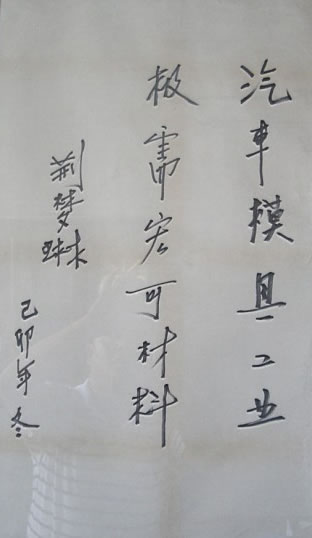 汽车模具工业
极需宏可材料
荆梦琳
己卯年冬